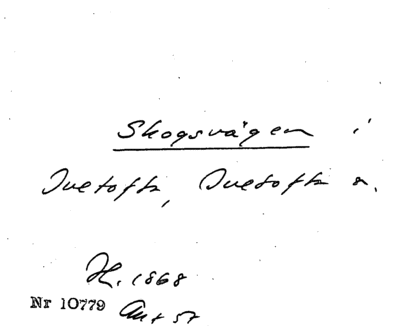 Skogsvägen i
Ivetofta, Ivetofta s.
H. 1868
Nr 10779 Ant 57